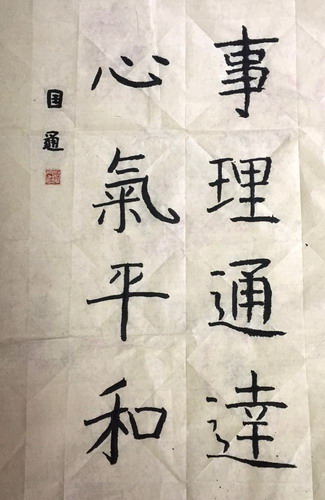 事理通達
心氣平和
国通